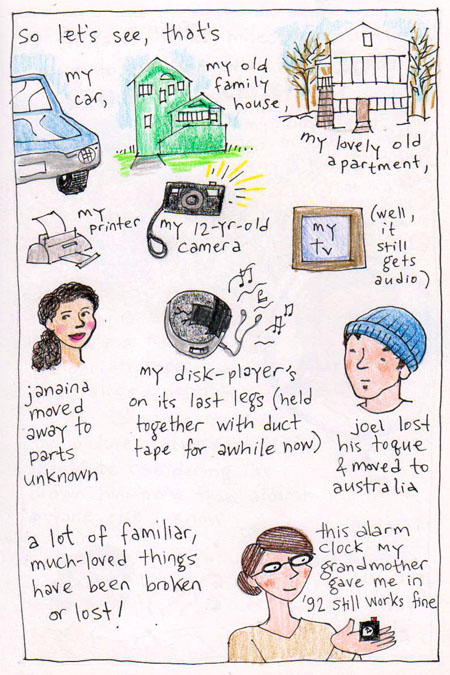 So let's see, that's
my
car,
my old
family
house,
my lovely old
apartment,
my
printer
my 12-yr-old
camera
my
tv
(well,
it
still
gets
audio)
janaina
moved
away to
parts
unknown
my disk-player's
on its last legs (held
together with duct
tape for awhile now)
joel lost
his toque
& moved to
australia
a lot of familiar,
much-loved things
have been broken
or lost!
this alarm
clock my
grandmother
gave me in
'92 still works fine